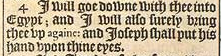 4 I will goe downe with thee into
Egypt; and I will also surely bring
thee vp againe: and Joseph shall put his
hand vpon thine eyes.